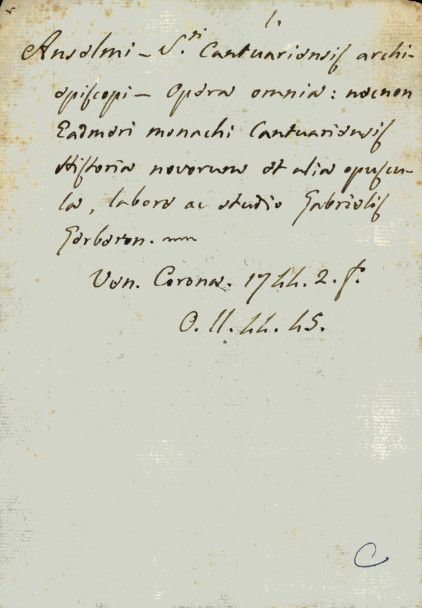 1.
Anselmi – S.ti Cantuariensis archi-
episcopi – Opera omnia: necnon
Eadmeri monachi Cantuariensis
Historia novorum et alia opuscu-
la, labore ac studio Gabrielis
Gerberon.
Ven. Corona. 1744. 2. f.
O. II. 44. 45.
C